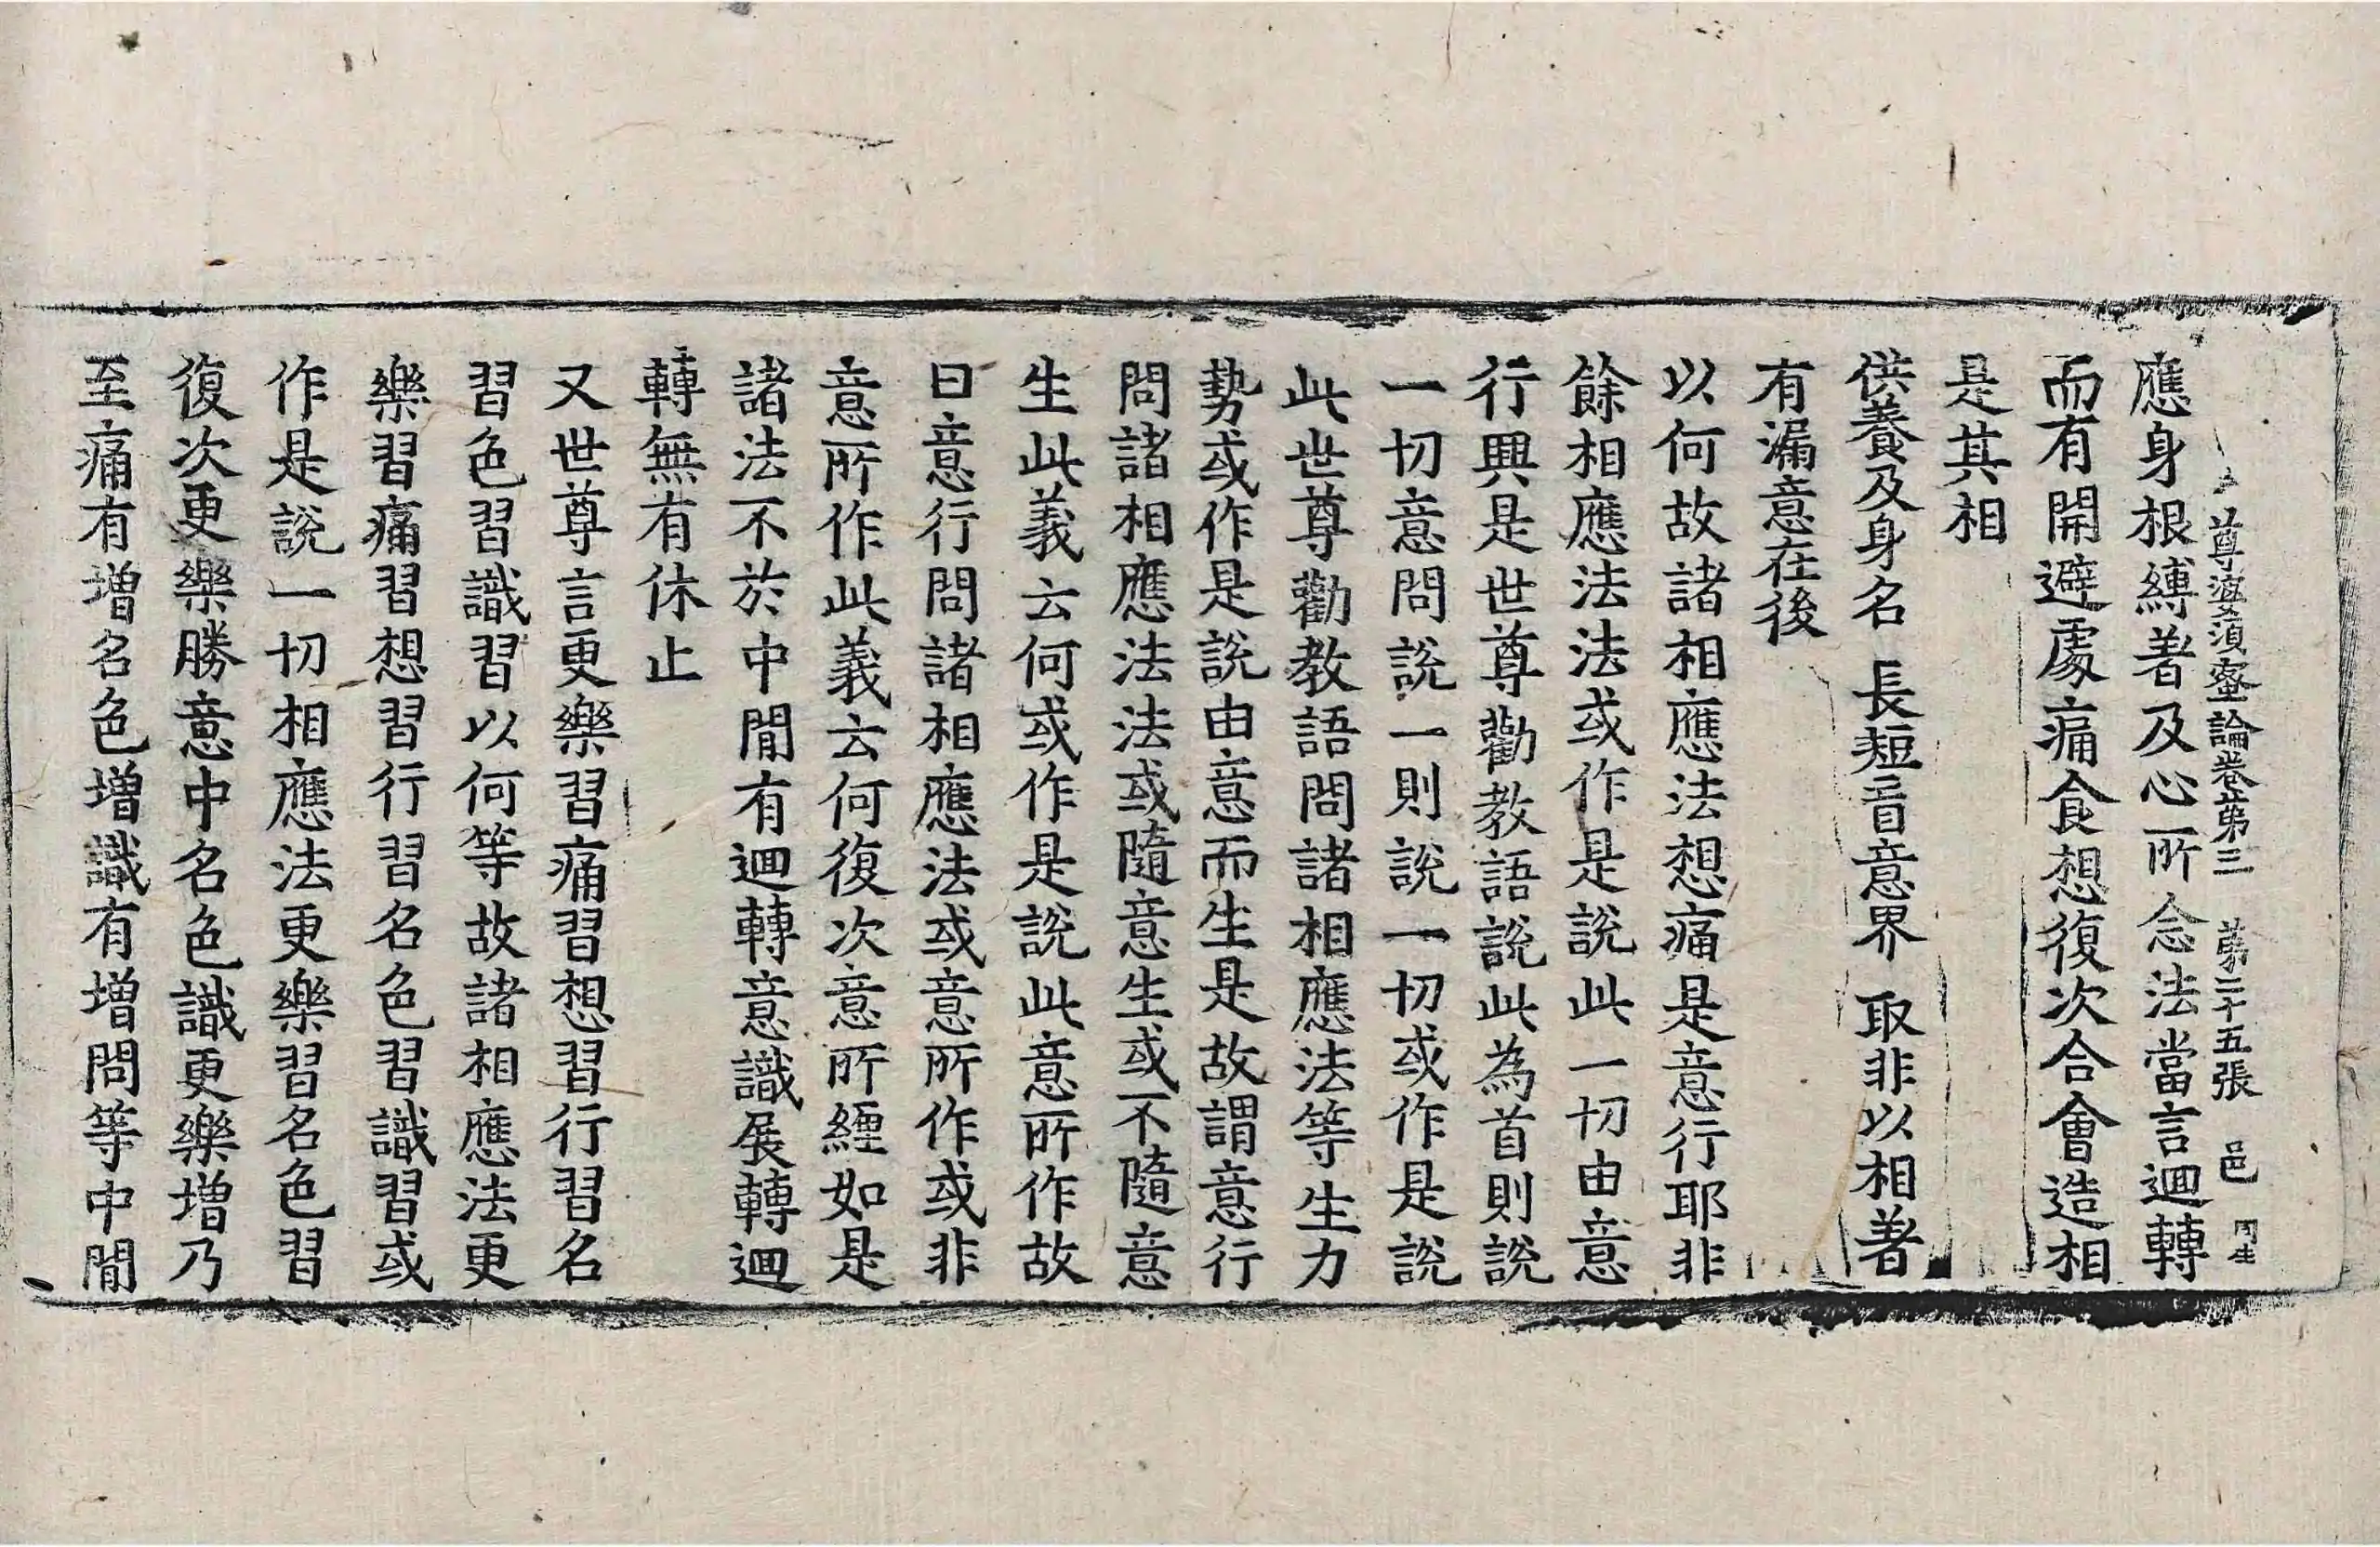 尊婆須蜜論卷第三 第二十五張 邑
應身根縛著及心所念法當言迴轉
而有開避處痛食想復次合會造相
是其相
供養及身名 長短音意界 取非以相著
有漏意在後
以何故諸相應法想痛是意行耶非
餘相應法法或作是說此一切由意
行興是世尊勸教語說此為首則說
一切意問說一則說一切或作是說
此世尊勸教語問諸相應法等生力
勢或作是說由意而生是故謂意行
問諸相應法法或隨意生或不隨意
生此義云何或作是說此意所作故
曰意行問諸相應法或意所作或非
意所作此義云何復次意所經如是
諸法不於中間有迴轉意識展轉迴
轉無有休止
又世尊言更樂習痛習想習行習名
習色習識習以何等故諸相應法更
樂習痛習想習行習名色習識習或
作是說一切相應法更樂習名色習
復次更樂勝意中名色識更樂增乃
至痛有增名色增識有增問等中間